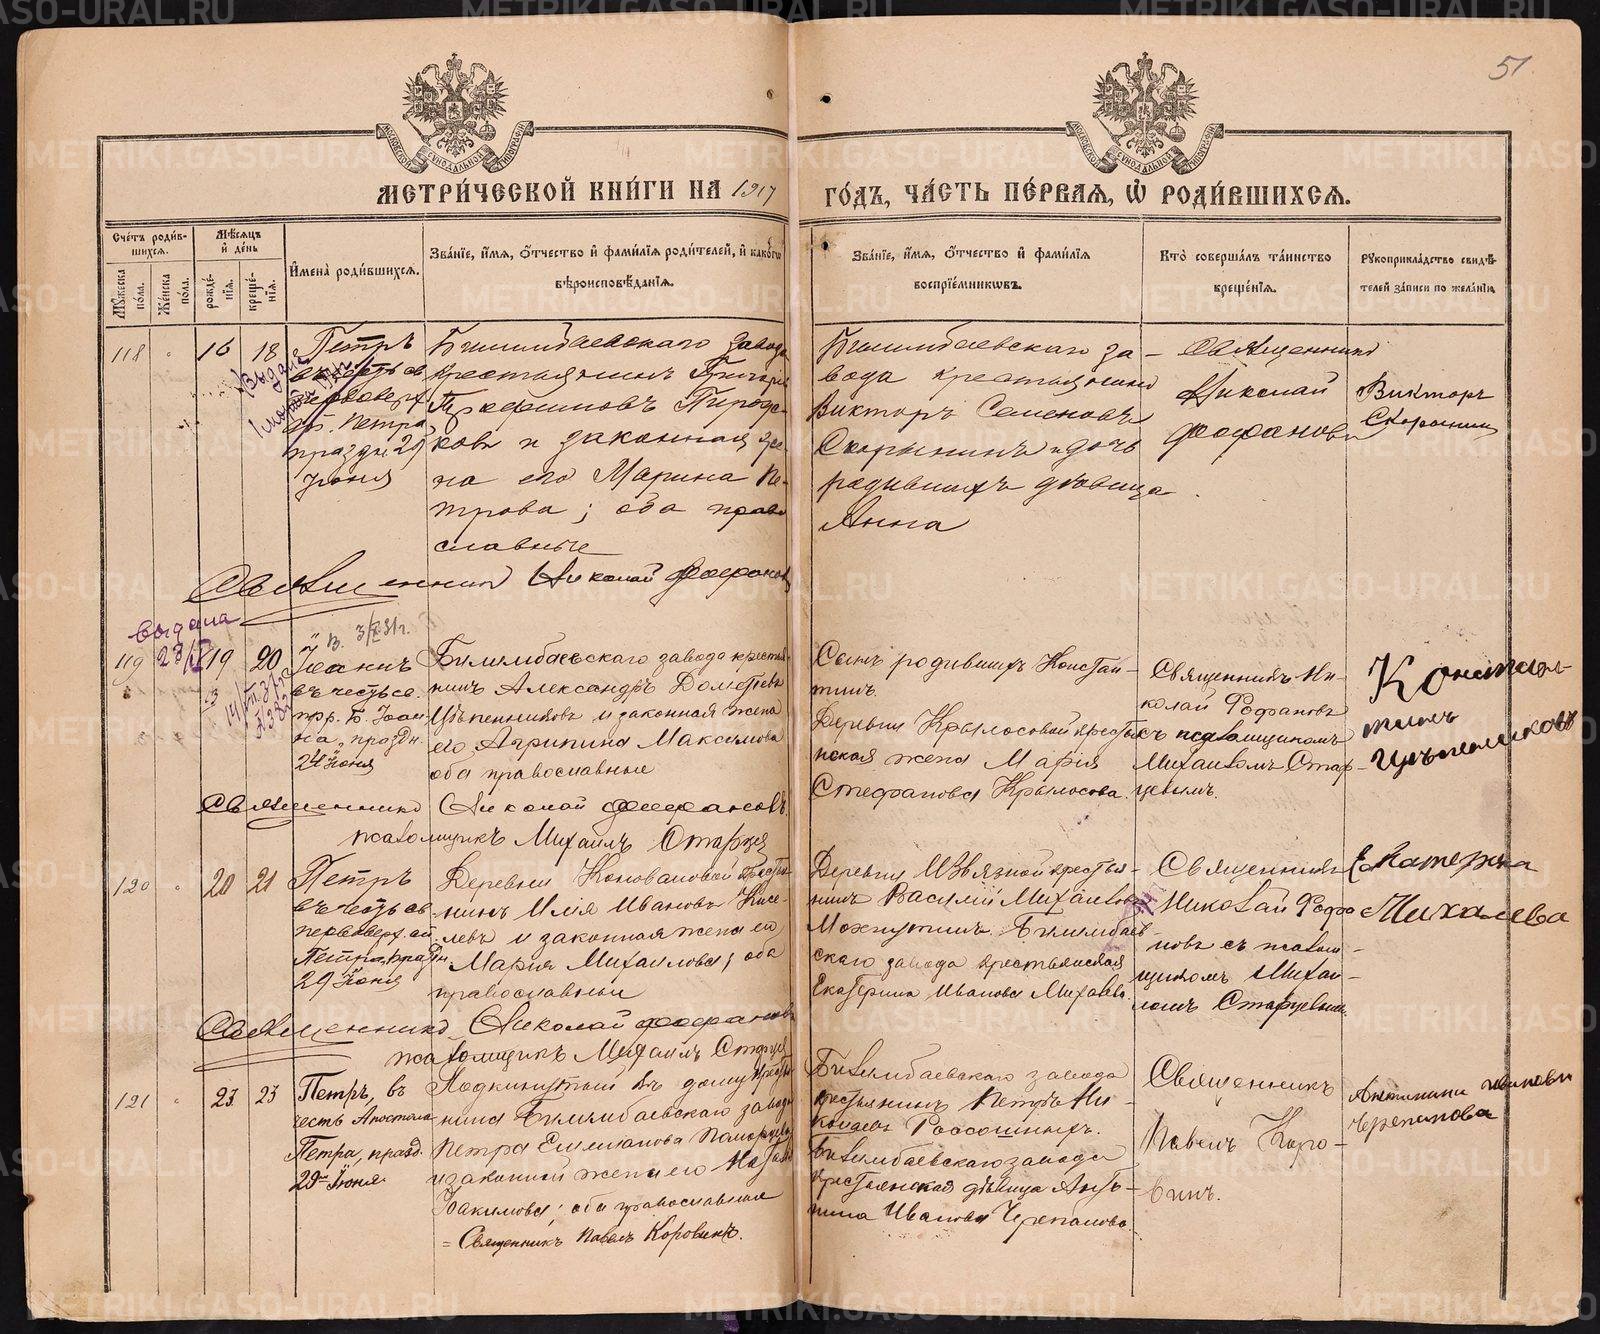 51
МЕТРИ́ЧЕСКОЙ КНИ́ГИ НА 1917
ГО́ДЪ, ЧА́СТЬ ПЕ́РВАЯ, Ѡ РОДИ́ВШИХСЯ.
Сче́тъ роди́вшихся.
Мꙋ́жеска по́ла.
Же́нска по́ла.
Мѣ́сяцъ и҆ де́нь
рожде́нїя.
креще́нїя.
И҆мена̀ роди́вшихся.
Зва́нїе, и҆́мя, ѻ҆́тчество и҆ фами́лїя роди́телей, и҆ како́гѡ
вѣроисповѣ́данїя.
Зва́нїе, и҆́мя, ѻ҆́тчество и҆ фами́лїя
воспрїе́мникѡвъ.
Кто̀ соверша́лъ та́инство
креще́нїя.
Рꙋкоприкла́дство свидѣ́-
телей за́писи по жела́нїю.
118 16 18
Петръ
въ честь св.
первоверх.
ап. Петра
праздн. 29
Іюня
Билимбаевскаго завода
крестьянинъ Григорій
и законная же-
на его Марина Пе-
трова; оба право
славные
Билимбаевскаго за-
вода крестьянинъ
Викторъ Семеновъ
Скорынинъ и дочь
родившихъ девица
Анна
Священникъ
Николай
Фофановъ
Викторъ
Скорынинъ
Священникъ Николай Фофановъ
выдана
119 19 20
Іоаннъ
въ честь св.
прр. Б. Іоан
на, праздн.
24 Іюня
Билимбаевскаго завода крестья
нинъ Александръ Дометіевъ
Цѣпенниковъ и законная жена
его Агрипина Максимова
оба православные
Сынъ родившихъ Констан-
тинъ.
Деревни Крылосовой крестья
нская жена Марія
Стефанова Крылосова.
Священникъ Ни-
колай Фофановъ
съ псаломщикомъ
Михаиломъ Стар-
цевымъ.
Констан-
тинъ
Цѣпенниковъ
Священникъ Николай Фофановъ
псаломщикъ Михаилъ Старцев
120 20 21
Петръ
въ честь св.
первоверх. ап.
Петра, праздн.
29 Іюня
Деревни Коноваловой крестья
нинъ Илія Ивановъ Кисе-
левъ и законная жена его
Марія Михаилова; оба
православные
крестья-
нинъ Василій Михаиловъ
Билимбаев-
скаго завода крестьянская
Екатерина Иванова Михалева.
Священникъ
Николай Фофа
новъ съ псалом-
щикомъ Михаи-
ломъ Старцевымъ.
Екатерина
Михалева
Священникъ Николай Фофановъ
псаломщикъ Михаилъ Старцев
121 23 23
Петръ, въ
честь Апостола
Петра, празд.
29го Іюня
Подкинутый въ дому крестья
нина Билимбаевскаго завода
Петра Емельянова
и законной жены его
Іоакимова; оба православные
= Священникъ Павелъ Коровинъ.
Билимбаевскаго завода
крестьянинъ Петръ Ни
Россошныхъ.
Билимбаевскаго завода
крестьянская дѣвица Анто-
нина Иванова Черепанова.
Священникъ
Павелъ Коро-
винъ.
Антонина Иванова
Черепанова